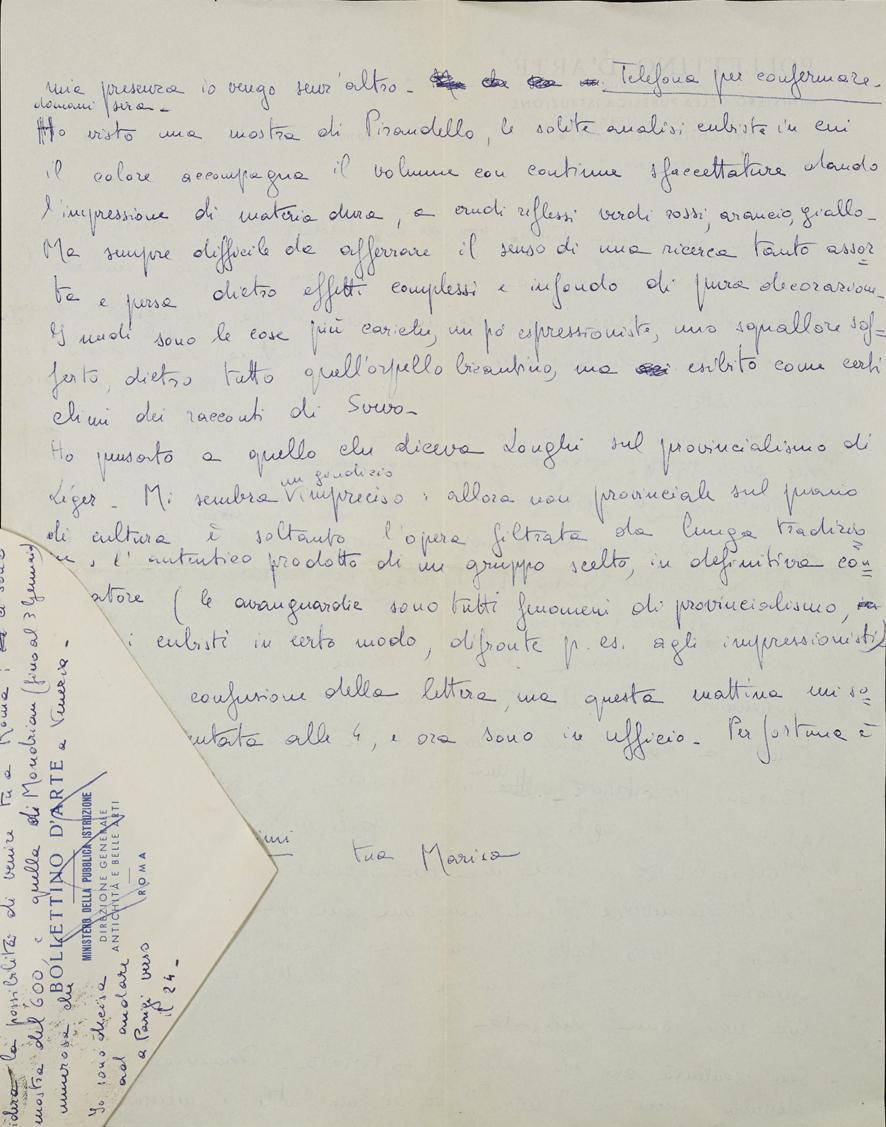 mia presenza io vengo senz'altro - Telefona per confermare.
domani sera -
Ho visto una mostra di Pirandello, le solite analisi cubiste in cui
il colore accompagna il volume con continue sfaccettature dando
l'impressione di materia dura, a crudi riflessi verdi rossi, arancio, giallo -
Ma sempre difficile da afferrare il senso di una ricerca tanto assor=
ta e persa dietro effetti complessi e infondo di pura decorazion.
I nudi sono le cose più cariche, un pò espressioniste, uno squallore sof=
ferto, dietro tutto quell'orpello bizantino, ma esibito come certi
climi dei racconti di Svevo -
Ho pensato a quello che diceva Longhi sul provincialismo di
un giudizio
Léger - Mi sembra V impreciso: allora non provinciale sul piano
di cultura è soltanto l'opera filtrata da lunga tradizio=
l'autentico prodotto di un gruppo scelto, in definitiva con=
atore (le avanguardie sono tutti fenomeni di provincialismo,
i cubisti in certo modo, difronte p. es. agli impressionisti)
confusione della lettera, ma questa mattina mi so=
ntata alle 4, e ora sono in ufficio - Per fortuna è
imi
tua Marisa
la possibilità di venire tu a Roma: ci sono
mostra del 600, e quella di Mondrian (fino al 3 Gennaio)
numerosa che a Venezia -
BOLLETTINO D'ARTE
MINISTERO DELLA PUBBLICA ISTRUZIONE
DIREZIONE GENERALE
ANTICHITÀ E BELLE ARTI
ROMA
Io sono decisa
ad andare
a Parigi verso
il 24 -